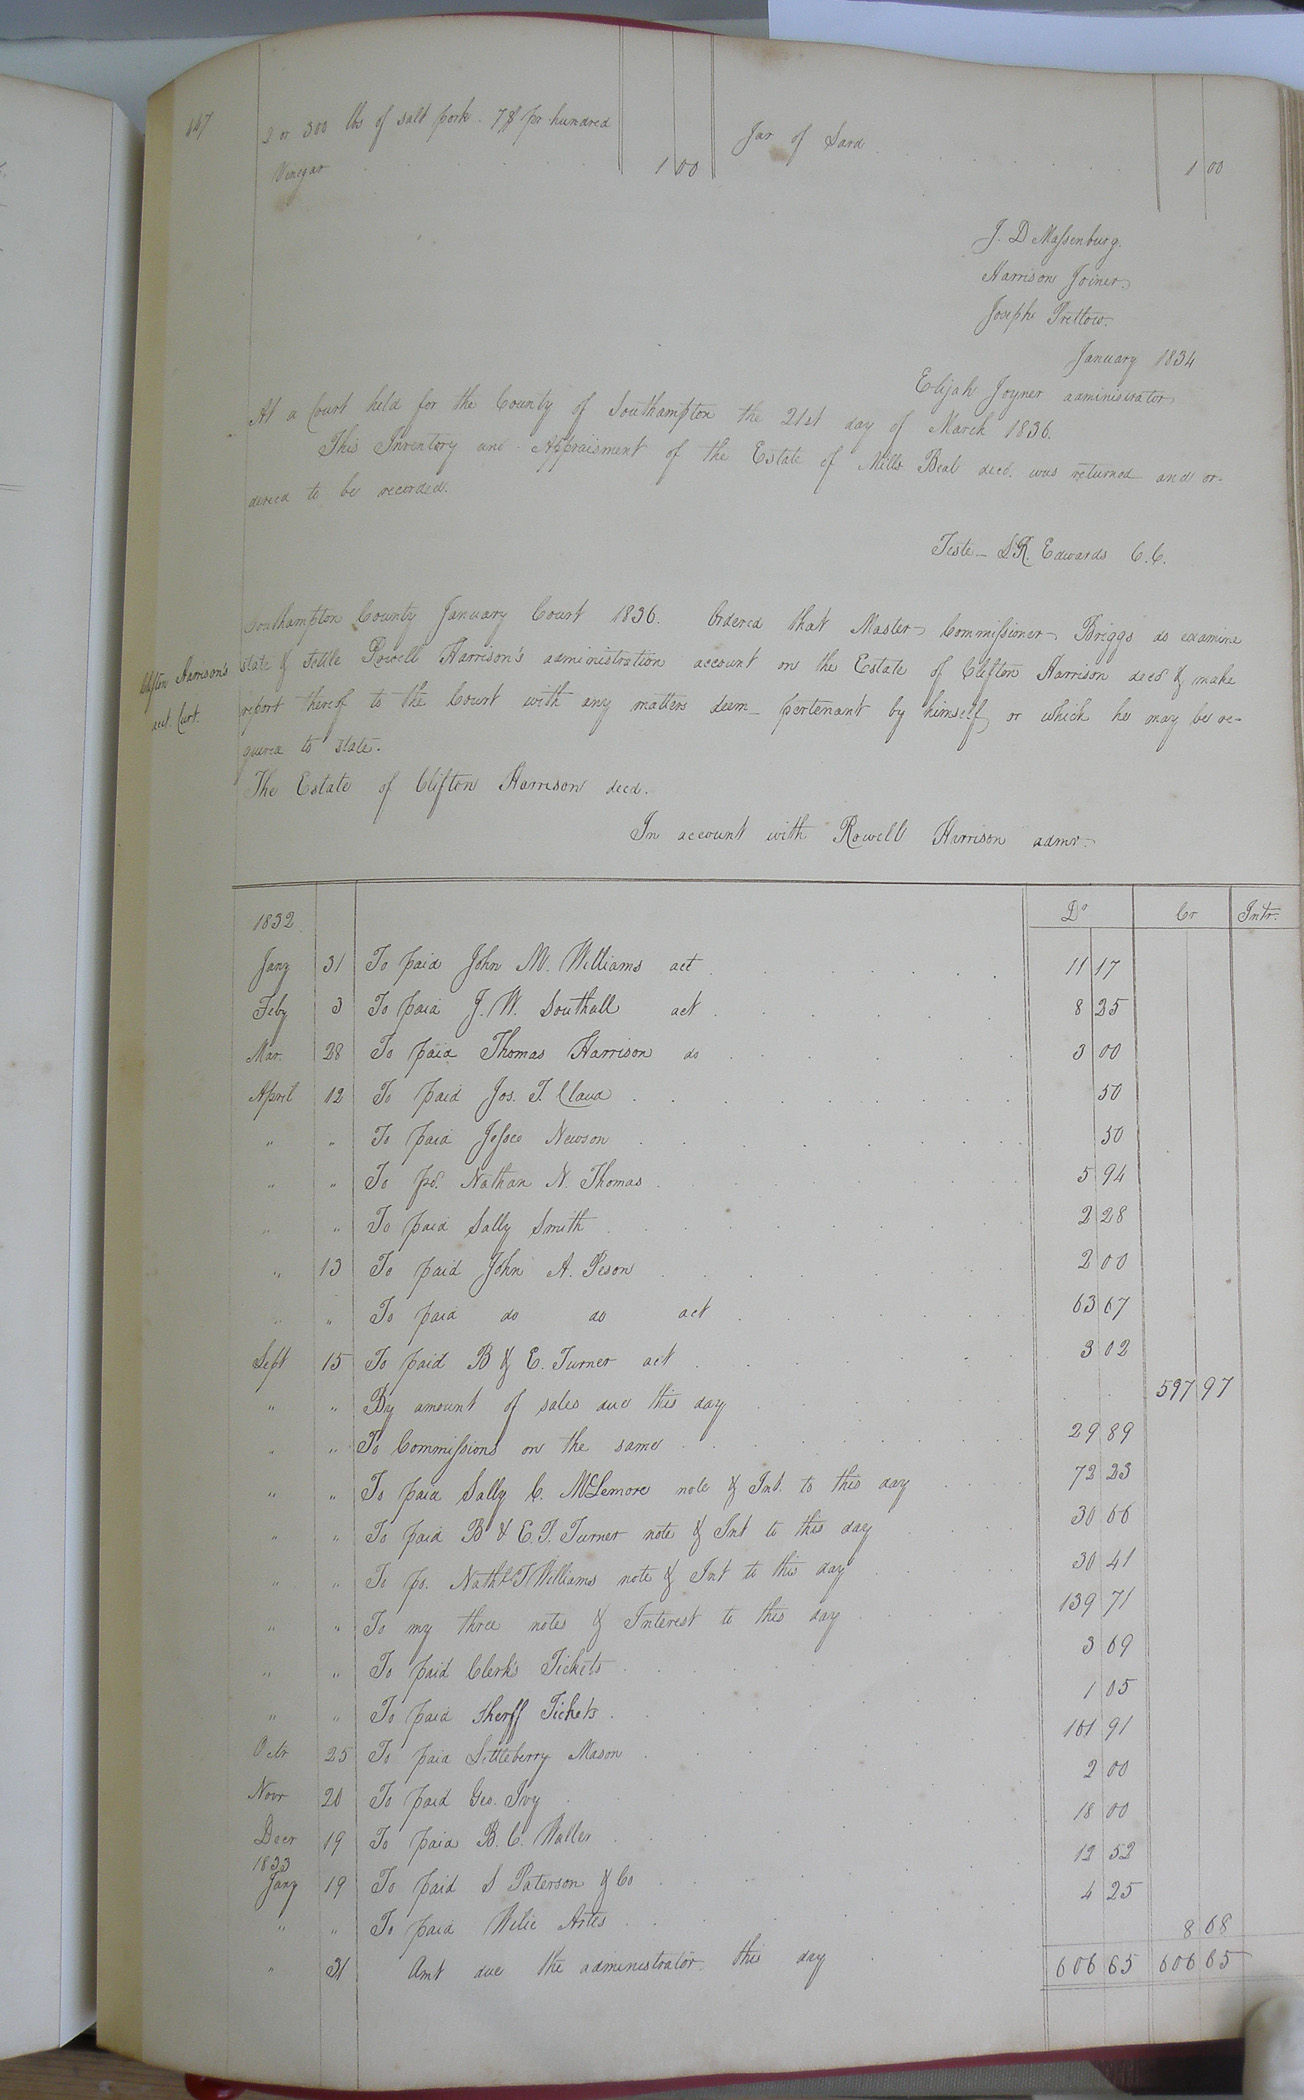 447
2 or 300 lbs of salt pork - 7$ pr hundred
Vinegar 1 00
Jar of Lard 1 00
J. D Massenburg.
Harrison Joiner
Joseph Pretlow.
January 1834
Elijah Joyner administrator
At a Court held for the County of Southampton the 21st day of March 1836.
This Inventory and Appraisment of the Estate of Mills Beal decd. was returned and or-
dered to be recorded.
Teste - L.R. Edwards C.C.
Southampton County January Court 1836. Ordered that Master Commissioner Briggs do examine
Clifton Harrison's
state & settle Rowell Harrison's administration account on the Estate of Clifton Harrison decd & make
acct. Curt.
report thereof to the Court with any matters deem pertenant by himself, or which he may be re-
quired to state.
The Estate of Clifton Harrison decd.
In account with Rowell Harrison admr.
1832 Dr Cr Intr.
Jany 31 To paid John M. Williams act 11 17
Feby 3 To paid J. W. Southall act 8 25
Mar. 28 To paid Thomas Harrison do 3 00
April 12 To paid Jos. T. Claud 50
" " To paid Jesse Newson 50
" " To pd. Nathan N. Thomas 5 94
" " To paid Sally Smith 2 28
" 13 To paid John A. Peson 2 00
" " To paid do do act 63 67
Sept 15 To paid B & E. Turner act 3 02
" " By amount of sales due this day 597 97
" " To Commissions on the same 29 89
" " To paid Sally C. McLemore note & Int. to this day 72 23
" " To paid B & E. T. Turner note & Int to this day 30 66
" " To pd. Nathl T Williams note & Int to this day 30 41
" " To my three notes & Interest to this day 139 71
" " To paid Clerk's Tickets 3 69
" " To paid Sherff Tickets 1 05
Octr 25 To paid Littleberry Mason 101 91
Novr 20 To paid Geo. Ivy 2 00
Decr 19 To paid B. C. Waller 18 00
1833
Jany 19 To paid S Paterson & Co 12 52
" " To paid Wilie Artes 4 25
" 31 Amt due the administrator this day 8 68
606 65 606 65